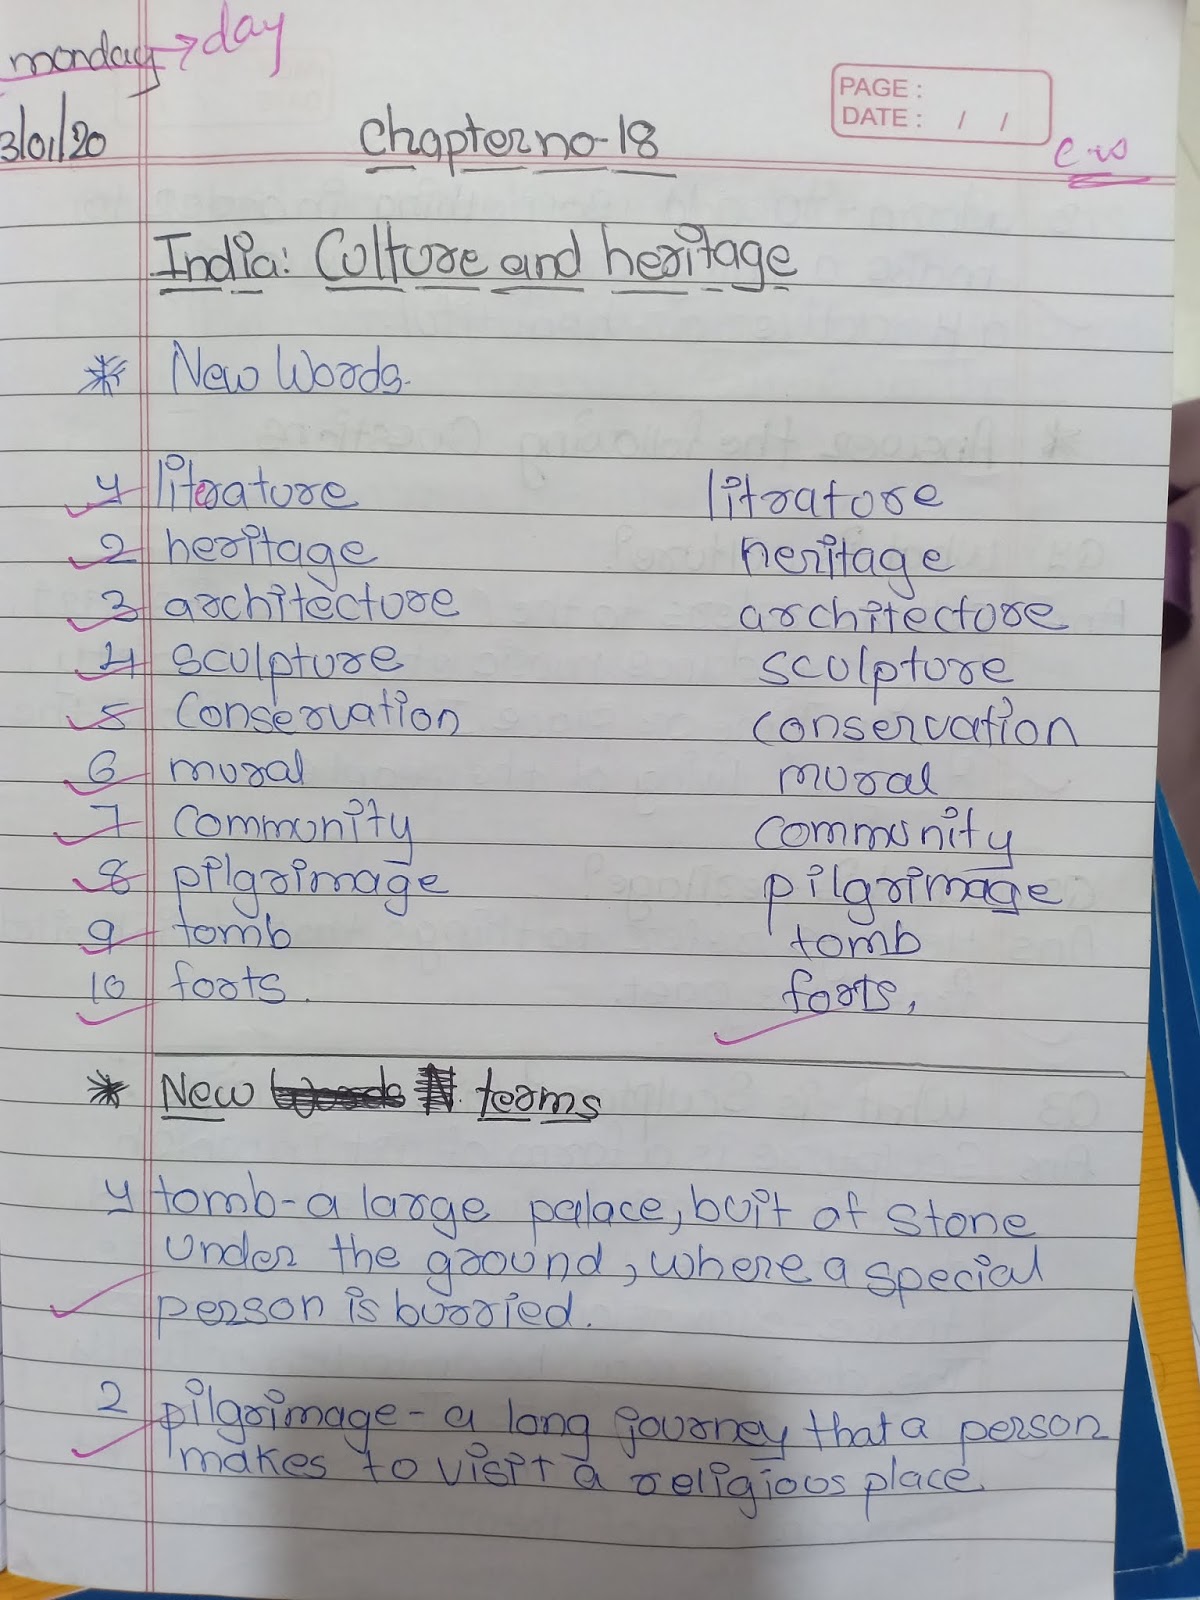 monday → day
PAGE :
DATE : / /
3/01/20 Chapter no-18
c.w
India: Culture and heritage
* New Words.
1) literature litrature
2 heritage heritage
3 architecture architecture
4 sculpture sculpture
5 Conservation conservation
6 mural mural
7 Community community
8 pilgrimage pilgrimage
9 tomb tomb
10 forts. forts,
* New terms
1) tomb - a large palace, buit of stone
under the ground, where a special
person is burried.
2 pilgrimage - a long journey that a person
makes to visit a religious place